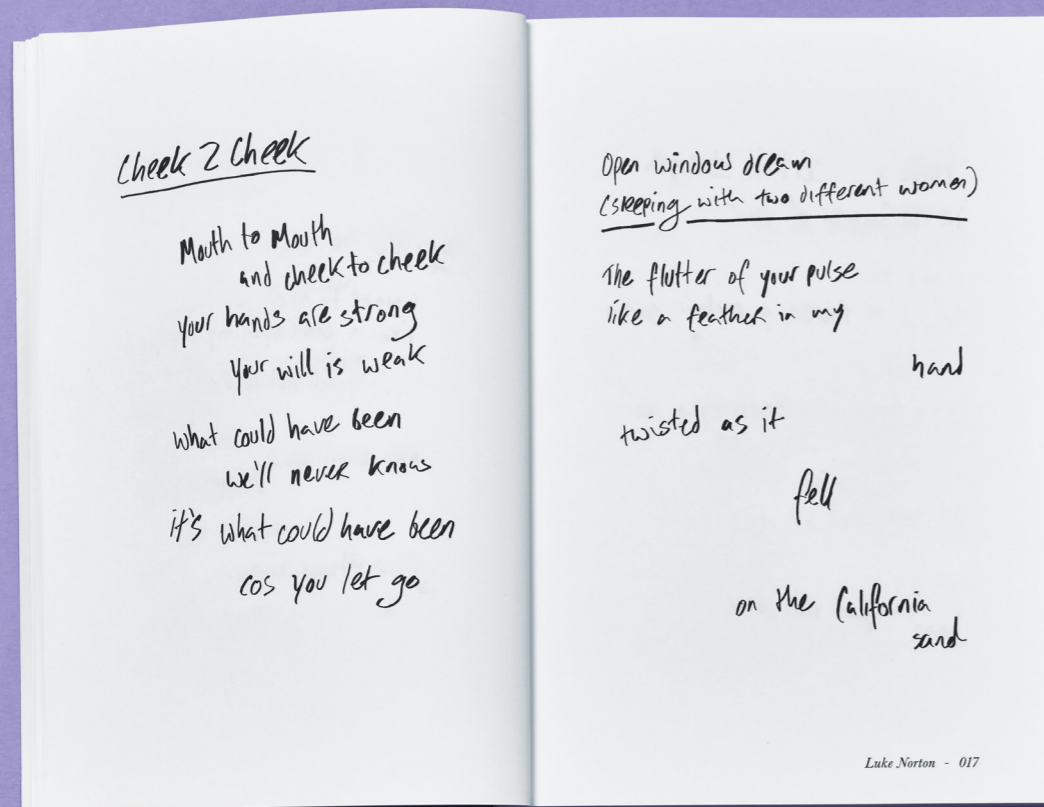 Cheek 2 Cheek
Mouth to Mouth
and cheek to cheek
your hands are strong
your will is weak
what could have been
we'll never know
it's what could have been
cos you let go
Open windows dream
(sleeping with two different women)
The flutter of your pulse
like a feather in my
hand
twisted as it
fell
on the California
sand
Luke Norton - 017